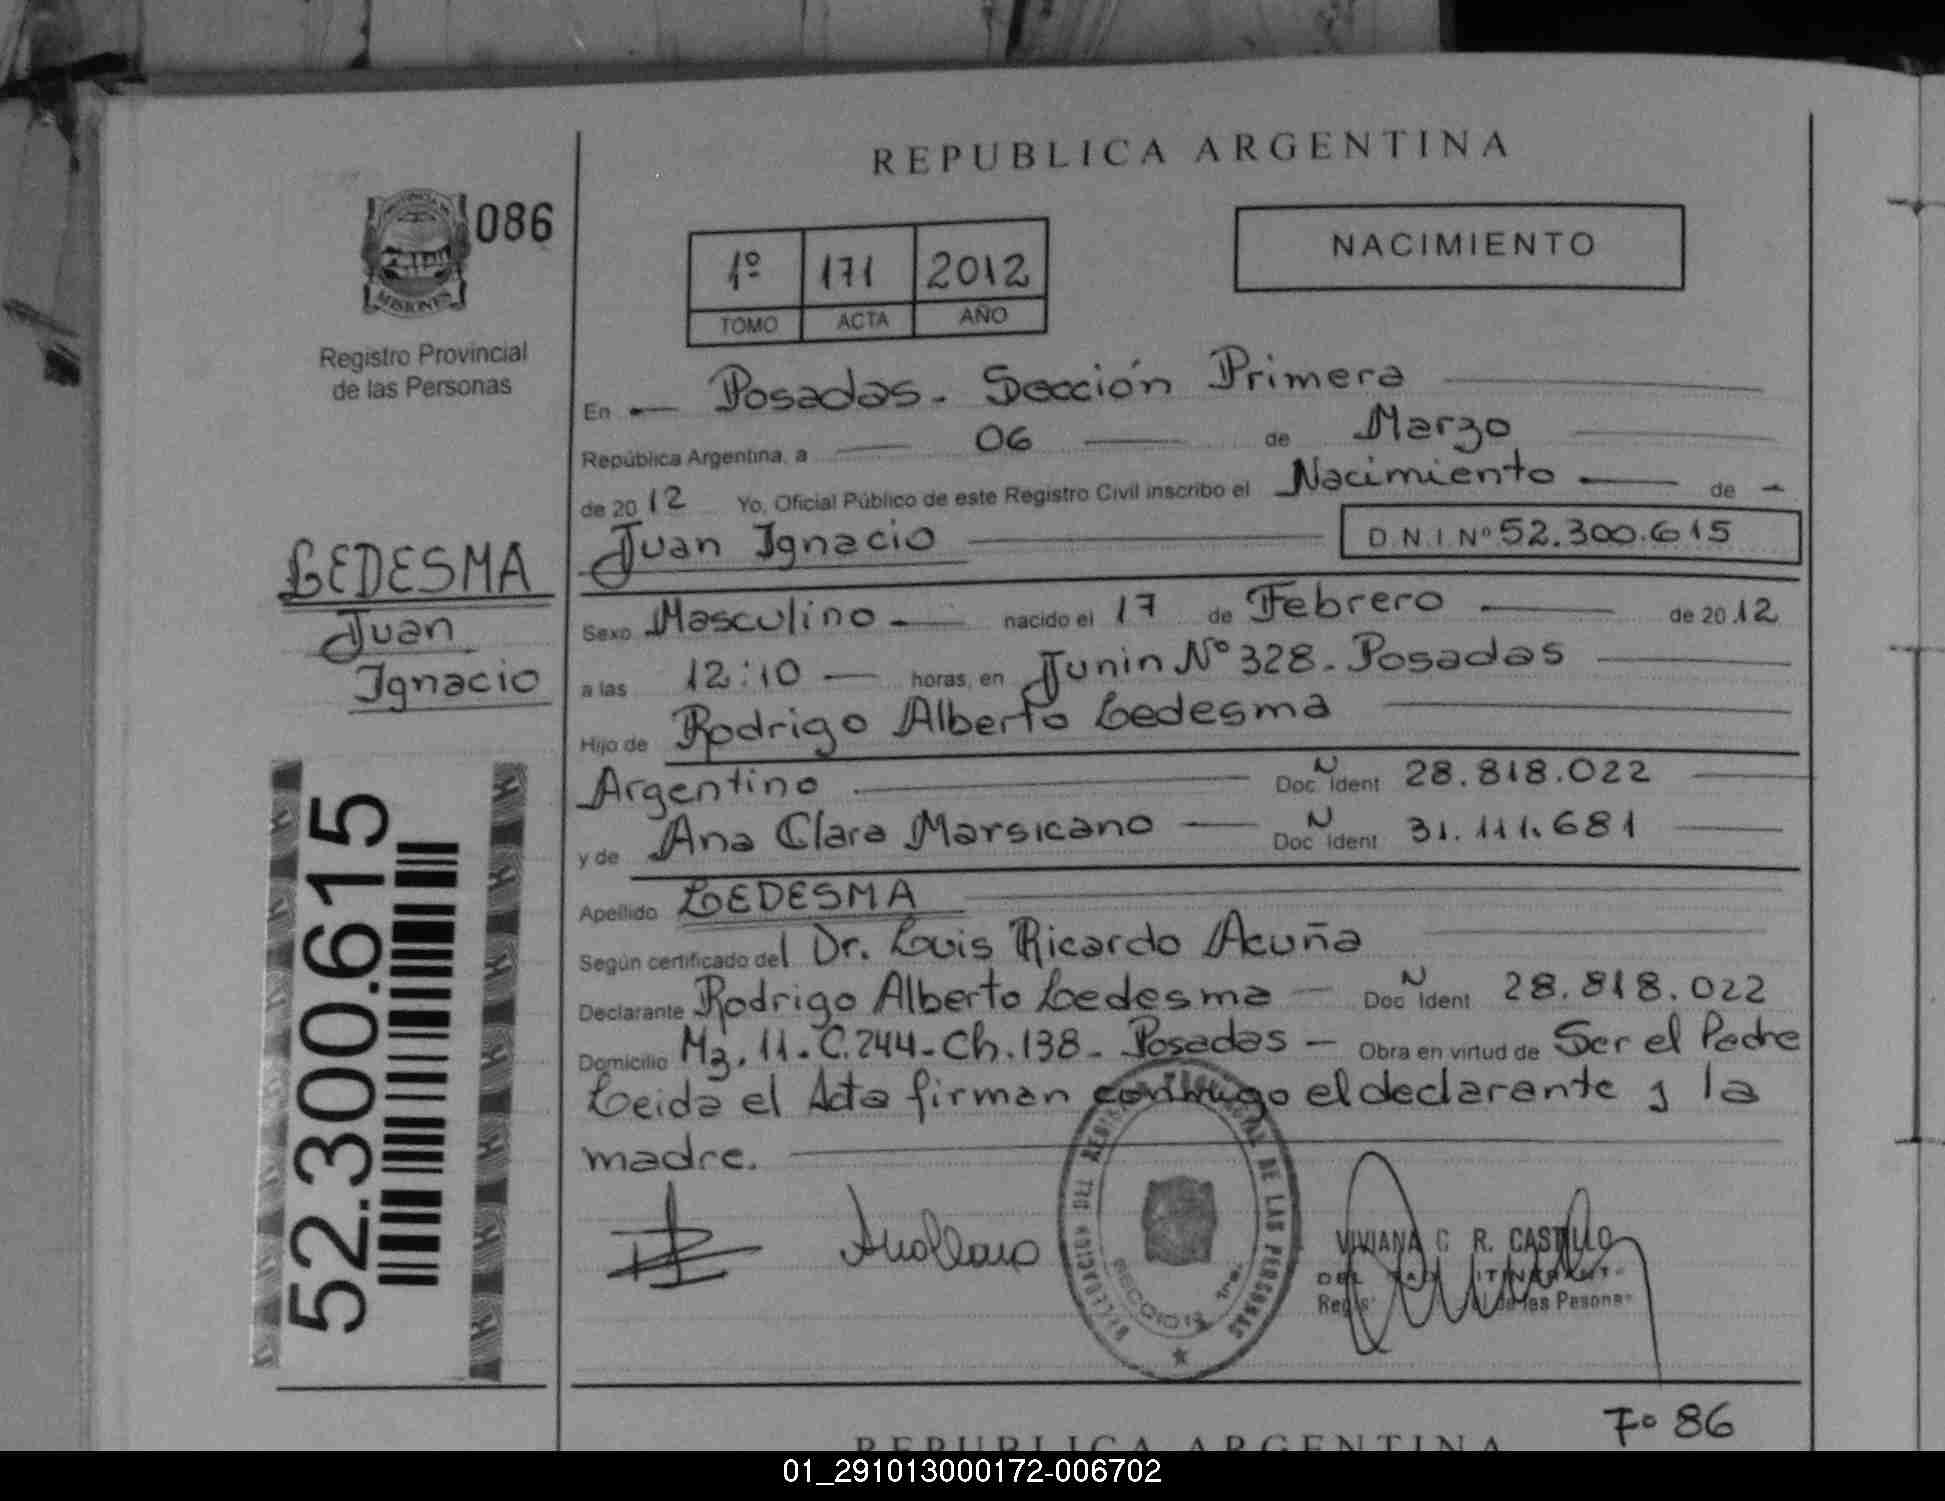 REPUBLICA ARGENTINA
086
MISIONES
Registro Provincial
de las Personas
1º 171 2012
TOMO ACTA AÑO
NACIMIENTO
En Posadas. Sección Primera
República Argentina, a 06 de Marzo
de 2012 Yo, Oficial Público de este Registro Civil inscribo el Nacimiento de
Juan Ignacio D.N.I. Nº 52.300.615
LEDESMA
Juan
Ignacio
Sexo Masculino nacido el 17 de Febrero de 2012
a las 12:10 horas, en Junin Nº 328. Posadas
Hijo de Rodrigo Alberto Ledesma
Argentino Doc. N Ident 28.818.022
y de Ana Clara Marsicano Doc. N Ident 31.111.681
Apellido LEDESMA
Según certificado del Dr. Luis Ricardo Acuña
Declarante Rodrigo Alberto Ledesma Doc. N Ident 28.818.022
Domicilio Mz. 11-C.244-Ch.138- Posadas Obra en virtud de Ser el Padre
Leida el Acta firman conmigo el declarante y la
madre.
52.300.615
DE LAS PERSONAS
SECCION 1ra.
VIVIANA C. R. CASTILLO
de las Pesonas
Fº 86
REPUBLICA ARGENTINA
01_291013000172-006702